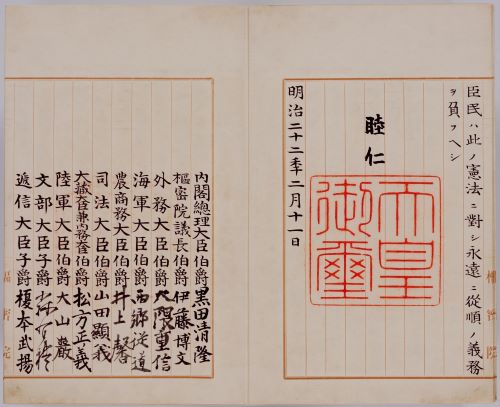 臣民ハ此ノ憲法ニ對シ永遠ニ從順ノ義務
ヲ負フヘシ
睦仁
天皇
御璽
明治二十二秊二月十一日
內閣總理大臣伯爵黑田清隆
樞密院議長伯爵伊藤博文
外務大臣伯爵大隈重信
海軍大臣伯爵西鄕從道
農商務大臣伯爵井上馨
司法大臣伯爵山田顯義
大藏大臣兼內務大臣伯爵松方正義
陸軍大臣伯爵大山巖
文部大臣子爵森有禮
遞信大臣子爵榎本武揚
樞密院
樞密院